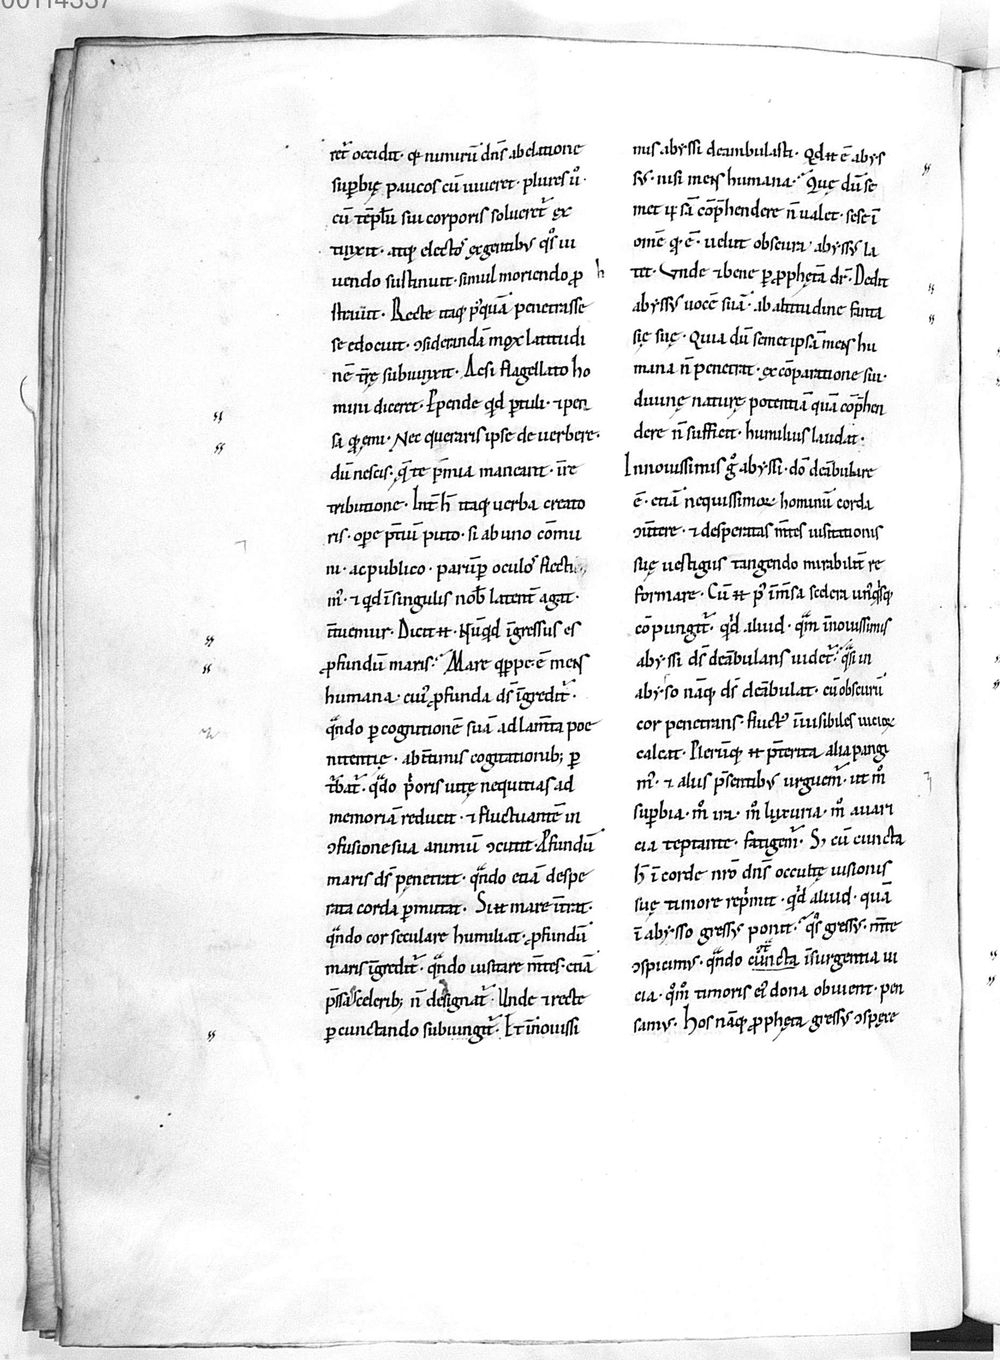 00114337
ret̄ occidit· q̄ nimirū dn̄s ab elatione
suꝑbię paucos cū uiueret· plures ů·
cū tēplū sui corporis solueret̄ ex
tinxit· atq; electos ex gentibus q̊s ui
uendo sustinuit· simul moriendo ꝓ
strauit· Recte itaq; p̊quā penetrasse
se edocuit· ↄsiderandā mox latitudi
nē tr̄ę subiunxit· Ac si flagellato ho
mini diceret· Ꝑpende qid ꝑtuli· ⁊ pen
sa q̄ emi· Nec queraris ipse de uerbere·
dū nescis· q̄ te p̄mia maneant· in re
tributione· Int̄ h̄ itaq; uerba creato
ris· opę p̄tiū puto· si ab uno cōmu
ni· ac publico· parūꝑ oculos flecti
m̄· ⁊ qid ī singulis nob̄ latent̄ agat·
ītuemur· Dicit ꝵ· Nūqid īgressus es
ꝓfundū maris· Mare qippe ē mens
humana· cuiꝰ ꝓfunda ds̄ īgredit̄·
qn̄do ꝑ cogitationē suā ad lam̄ta poe
nitentię· ab ītimis cogitationib; ꝑ
t̄bat̄· qn̄do p̊oris uitę nequitias ad
memoriā reducit· ⁊ fluctuantē in
ↄfusione sua animū ↄcutit· Ꝓfundū
maris ds̄ penetrat· qn̄do etiā despe
rata corda ꝑmutat· Sic ꝵ mare īt̄rat·
qn̄do cor seculare humiliat· ꝓfundū
maris īgredit̄· qn̄do uisitare m̄tes· etiā
p̄ssas celerib; n̄ designat̄· Unde ⁊ recte
ꝑcunctando subiungit̄· Et ī nouissi
mis abyssi deambulasti· Qid ꝵ ē abys
sus· nisi mens humana· Quę dū se
met ipsā cōp̄hendere n̄ ualet· sese ī
om̄e q̄ ē· uelut obscura abyssus la
tet· Vnde ⁊ bene ꝑ ꝓphętā dr̄· Dedit
abyssus uocē suā· ab altitudine fanta
się suę· Quia dū semetipsā mens hu
mana n̄ penetrat· ex cōparatione sui·
diuinę naturę potentiā quā cōp̄hen
dere n̄ sufficit· humilius laudat·
Innouissimis g̊ abyssi· do̅ deābulare
ē· etiā nequissimoꝝ hominū corda
ↄūtere· ⁊ desperatas m̄tes uisitationis
suę uestigiis tangendo mirabilit̄ re
formare· Cū ꝵ p̊ īm̄sa scelera unꝰqisq;
cōpungit̄· qid aliud· qm̄ ī nouissimis
abyssi ds̄ deābulans uidet̄· qsi in
abyso nāq; ds̄ deābulat· cū obscurū
cor penetrans· fluctꝰ īuisibiles uicioꝝ
calcat· Plerūq; ꝵ p̄terita alia pangi
m̄· ⁊ aliis p̄sentibus urguem̄· ut m̊
suꝑbia· m̊ ira· m̊ luxuria· m̊ auari
cia teptante· fatigem̄· S; cū cuncta
h̄ ī corde nr̄o dn̄s occultę uisionis
suę timore rep̊mit· qid aliud· quā
ī abysso gressus ponit· qs̊ gressus· m̄te
ↄspicimus· qn̄do cūncta īsurgentia ui
cia· qm̄ timoris eiꝰ dona obuient· pen
samus· Hos nāq; ꝓphęta gressus ↄspęre